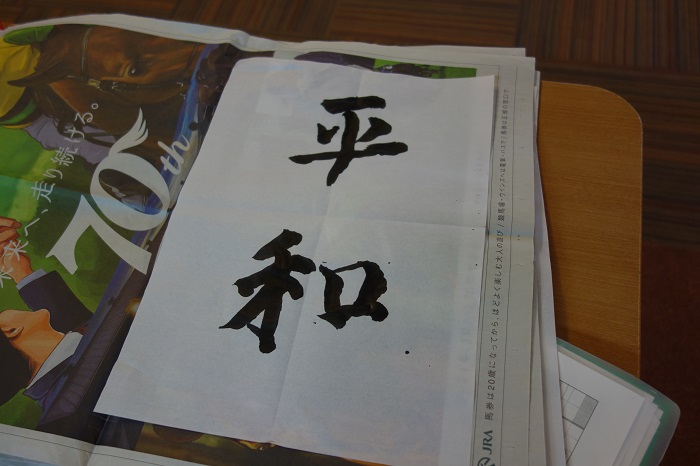 平
和
未来へ、走り続ける。
70th
馬券は20歳になってから。ほどよく楽しむ大人の遊び
JRA